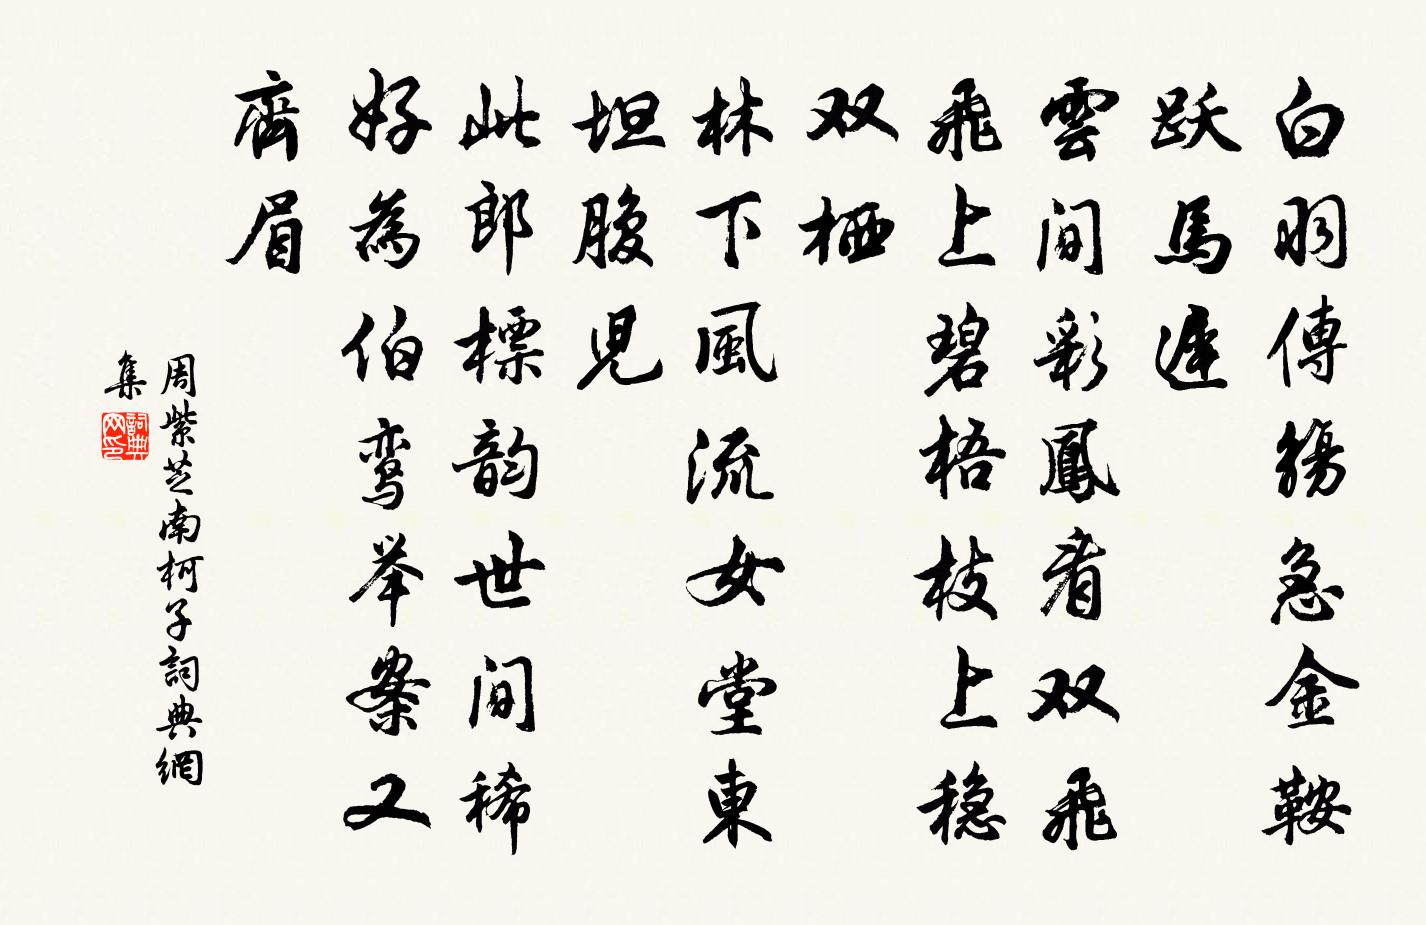 白羽傳觴急金鞍
跃馬遲
雲间彩鳳看双飛
飛上碧梧枝上穏
双栖
林下風流女堂東
坦腹児
此郎標韵世间稀
好為伯鸾举案又
齊眉
周紫芝南柯子詞典網
集
詞典网印